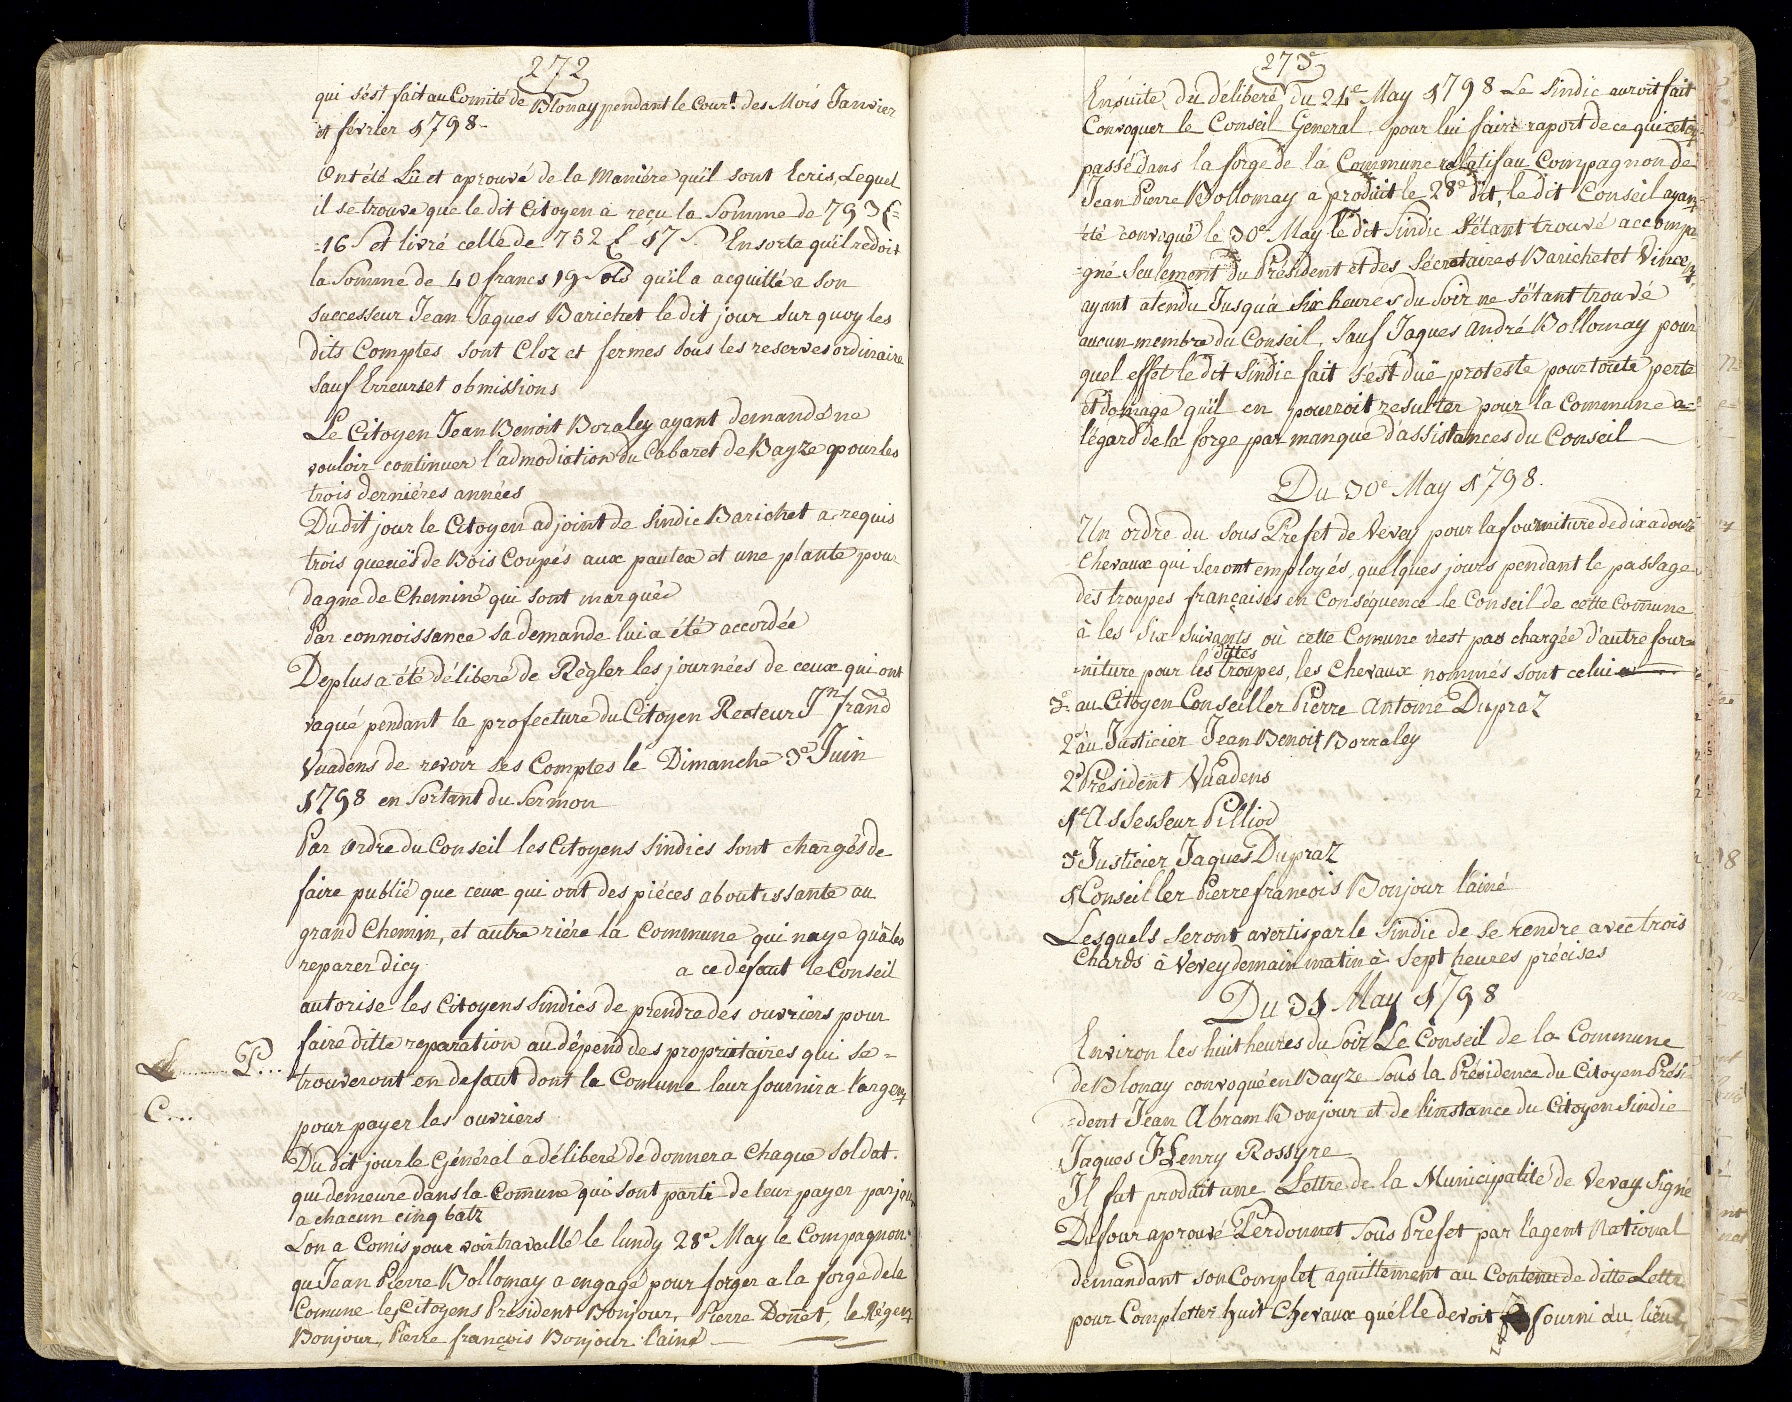 272
qui s'est fait au Comité de Blonay pendant le Cour.t des Mois Janvier
et février 1798-
Ont été Lû et aprouvé de la Maniére qu'il sont Ecris, Lequel
il se trouve que le dit Citoyen a reçu la Somme de 793 £=
=16 S et livré celle de 752 £ 17 S. Ensorte qu'il redoit
la Somme de 40 francs 19 Sols qu'il a acquitté a son
successeur Jean Jaques Barichet le dit jour sur quoy les
dits Comptes sont Cloz et fermes sous les reserves ordinaire
Sauf Erreurs et obmissions
Le Citoyen Jean Benoit Boraley ayant demandé ne
vouloir continuer l'admodiation du Cabaret de Bayze pour les
trois derniéres années
Du dit jour le Citoyen adjoint de Sindic Barichet a requis
trois queües de Bois Coupés aux pautex et une plante pour
dagne de Cheminé qui sont marqués
Par connoissance sa demande lui a été accordée
De plus a été déliberé de Règler les journées de ceux qui ont
vaqué pendant la profecture du Citoyen Recteur J.n frand
Vuadens de revoir ses Comptes le Dimanche 3e Juin
1798 en Sortant du Sermon
Par Ordre du Conseil les Citoyens Sindics sont chargés de
faire publié que ceux qui ont des piéces aboutissante au
grand Chemin, et autre riére la Commune qui naye qu'à les
reparer dicy a ce défaut le Conseil
autorise les Citoyens Sindics de prendre des ouvriers pour
faire ditte reparation au dépend des proprietaires qui se=
L...... P...
trouveront en defaut dont la Comune leur fournira l'argent
C....
pour payer les ouvriers
Du dit jour le Général a déliberé de donner a Chaque Soldat.
qui demeure dans la Comune qui sont parti de leur payer par jour
a chacun cinq batz
Lon a Comis pour voir travaillé le lundy 28e May le Compagnon
que Jean Pierre Bollomay a engagé pour forger a la forge de la
Comune les Citoyens Président Bonjour, Pierre Donet, le Régent
Bonjour, Pierre françois Bonjour l'ainé
273
Ensuite du délibéré du 24e May 1798 Le Sindic auroit fait
Convoquer le Conseil General pour lui faire raport de ce qui cetoit
passé dans la forge de la Commune relatif au Compagnon de
Jean Pierre Bollomay a produit le 28e dit, le dit Conseil ayant
été convoqué le 30e May le dit Sindic s'étant trouvé accompa
=gné Seulement du Président et des Sécretaires Barichet et Vincent
ayant atendu Jusqu'a Six heures du Soir ne s'étant trouvé
aucun membre du Conseil, Sauf Jaques André Bollomay pour
quel effet le dit Sindic fait s'est düe proteste pour toute perte
et domage qu'il en pourroit resulter pour la Commune a
l'égard de la forge par manque d'assistances du Conseil
Du 30e May 1798.
Un ordre du sous Prefet de Vevey pour la fourniture de dix a douze
Chevaux qui seront employés, quelques jours pendant le passage
des troupes françaises en Conséquence le Conseil de cette Comune
à les Six suivants où cette Comune n'est pas chargée d'autre four=
=niture pour les dittes troupes, les Chevaux nommés sont celui
3e au Citoyen Conseiller Pierre Antoine Dupraz
2e au Justicier Jean Benoit Borraley
2e Président Vuadens
1e Assesseur Pilliod
3e Justicier Jaques Dupraz
1 Conseiller Pierre francois Bonjour l'ainé
Lesquels seront avertis par le Sindic de se rendre avec trois
Chards à Vevey demain matin à Sept heures précises
Du 31 May 1798
Environ les huit heures du Soir Le Conseil de la Commune
de Blonay convoqué en Bayze sous la Présidence du Citoyen Prési
=dent Jean Abram Bonjour et de l'instance du Citoyen Sindic
Jaques Henry Rossyre
Il fat produit une Lettre de la Municipalité de Vevay Signé
Dufour aprouvé Perdonnet Sous Prefet par l'agent National
demandant son Complet aquittement au Contenu de ditte Lettre
pour Completter huit Chevaux quelle devoit fourni au lieu